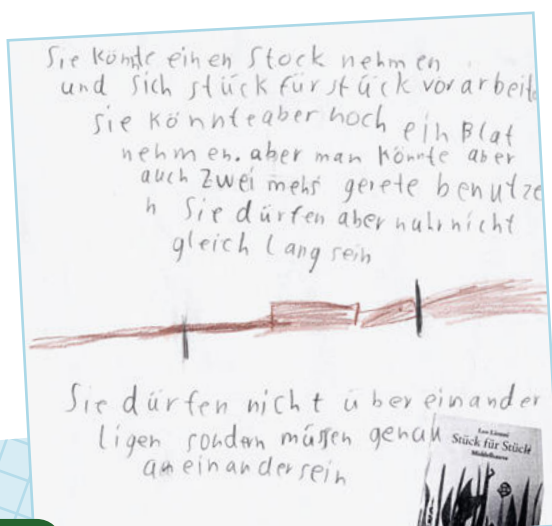 Sie könnte einen Stock nehmen
und sich stück für stück vorarbeite
sie könnte aber noch ein Blat
nehmen. aber man könnte aber
auch zwei mehs gerete benutze
n Sie dürfen aber nuhr nicht
gleich lang sein
Sie dürfen nicht über einander
ligen sondern müssen genau
an einander sein
Leo Lionni
Stück für Stück